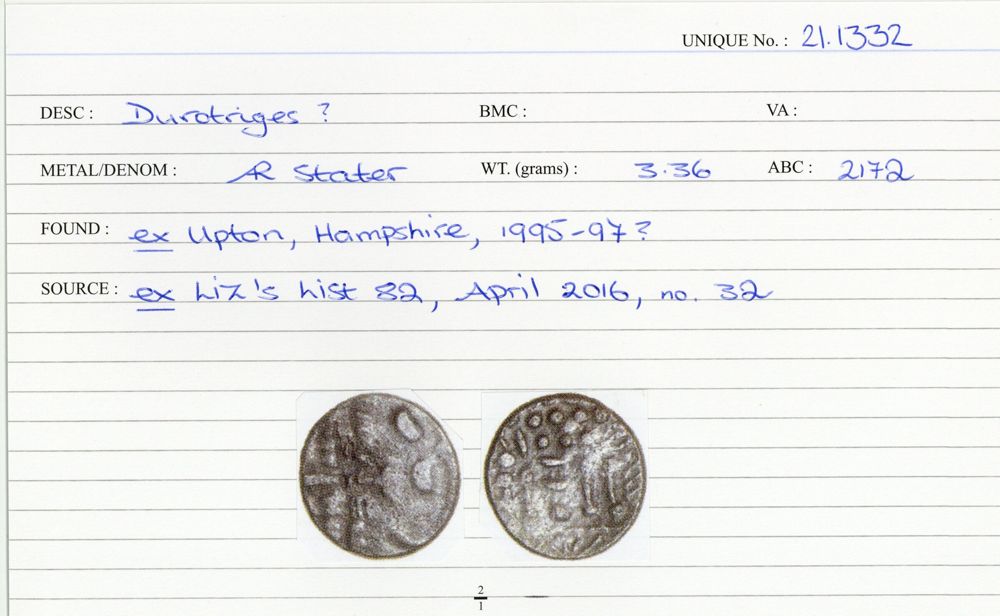 UNIQUE No. : 21.1332
DESC : Durotriges ? BMC : VA :
METAL/DENOM : AR Stater WT. (grams) : 3.36 ABC : 2172
FOUND : ex Upton, Hampshire, 1995-97?
SOURCE : ex Liz's List 82, April 2016, no. 32
2
1